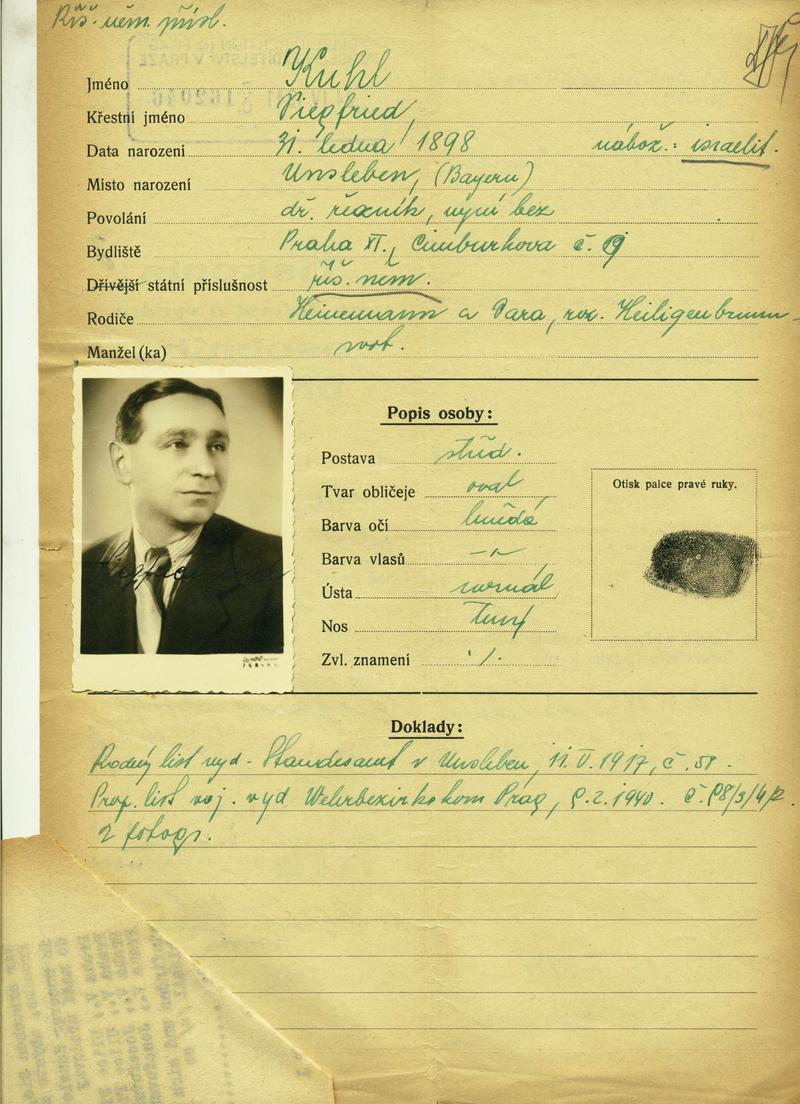 Říš. něm. přísl.
Jméno Kuhl
Křestní jméno Siegfried,
Data narození 31. ledna 1898 nábož.: israelit.
Místo narození Unsleben, (Bayern)
Povolání dř. řezník, nyní bez
Bydliště Praha XI., Cimburkova č. 19
Dřívější státní příslušnost říš. něm.
Rodiče Heinemann a Sara, roz. Heiligenbrunn
Manžel (ka) svob.
Popis osoby:
Postava střed.
Tvar obličeje oval
Barva očí hnědá
Barva vlasů -"-
Ústa normál
Nos
Zvl. znamení ./.
Otisk palce pravé ruky.
Doklady:
Rodný list vyd. Standesamt v Unsleben, 11.V.1917, č. 51.
list voj. vyd Wehrbezirkskom Prag, 9.2.1940. č.
2 fotogr.